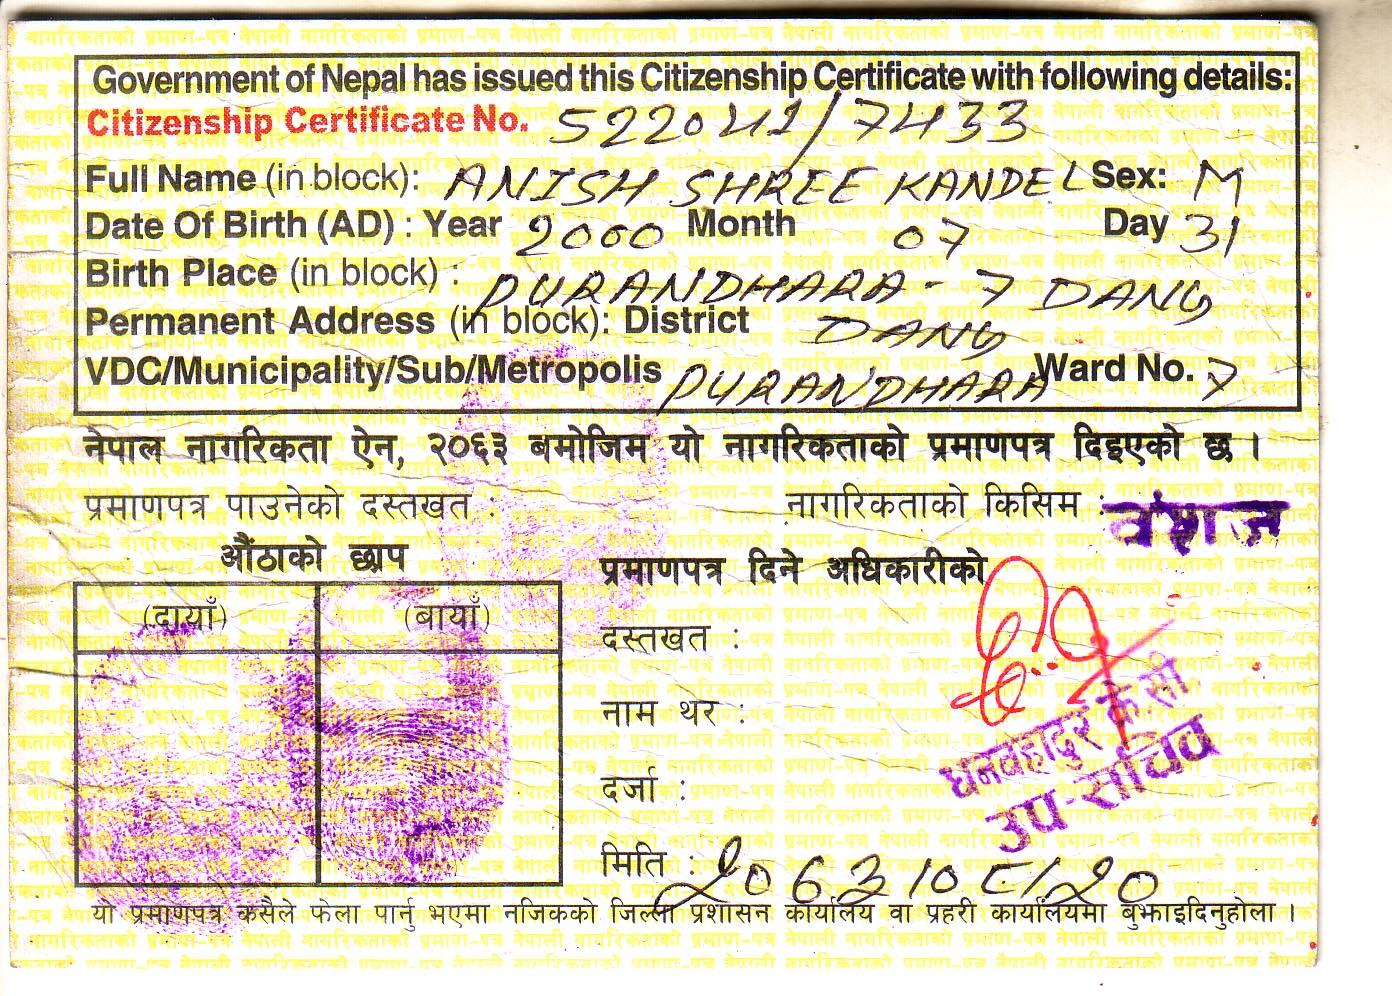 Government of Nepal has issued this Citizenship Certificate with following details:
Citizenship Certificate No. 522041/7433
Full Name (in block): ANISH SHREE KANDEL Sex: M
Date Of Birth (AD) : Year 2000 Month 07 Day 31
Birth Place (in block) : PURANDHARA - 7 DANG
Permanent Address (in block): District DANG
VDC/Municipality/Sub/Metropolis PURANDHARA Ward No. 7
नेपाल नागरिकता ऐन, २०६३ बमोजिम यो नागरिकताको प्रमाणपत्र दिइएको छ ।
प्रमाणपत्र पाउनेको दस्तखत : नागरिकताको किसिम : वंशज
औंठाको छाप
(दायाँ) (बायाँ)
प्रमाणपत्र दिने अधिकारीको
दस्तखत :
नाम थर : धनबहादुर के.सी
दर्जा : उप-सचिव
मिति :
यो प्रमाणपत्र कसैले फेला पार्नु भएमा नजिकको जिल्ला प्रशासन कार्यालय वा प्रहरी कार्यालयमा बुझाइदिनुहोला ।